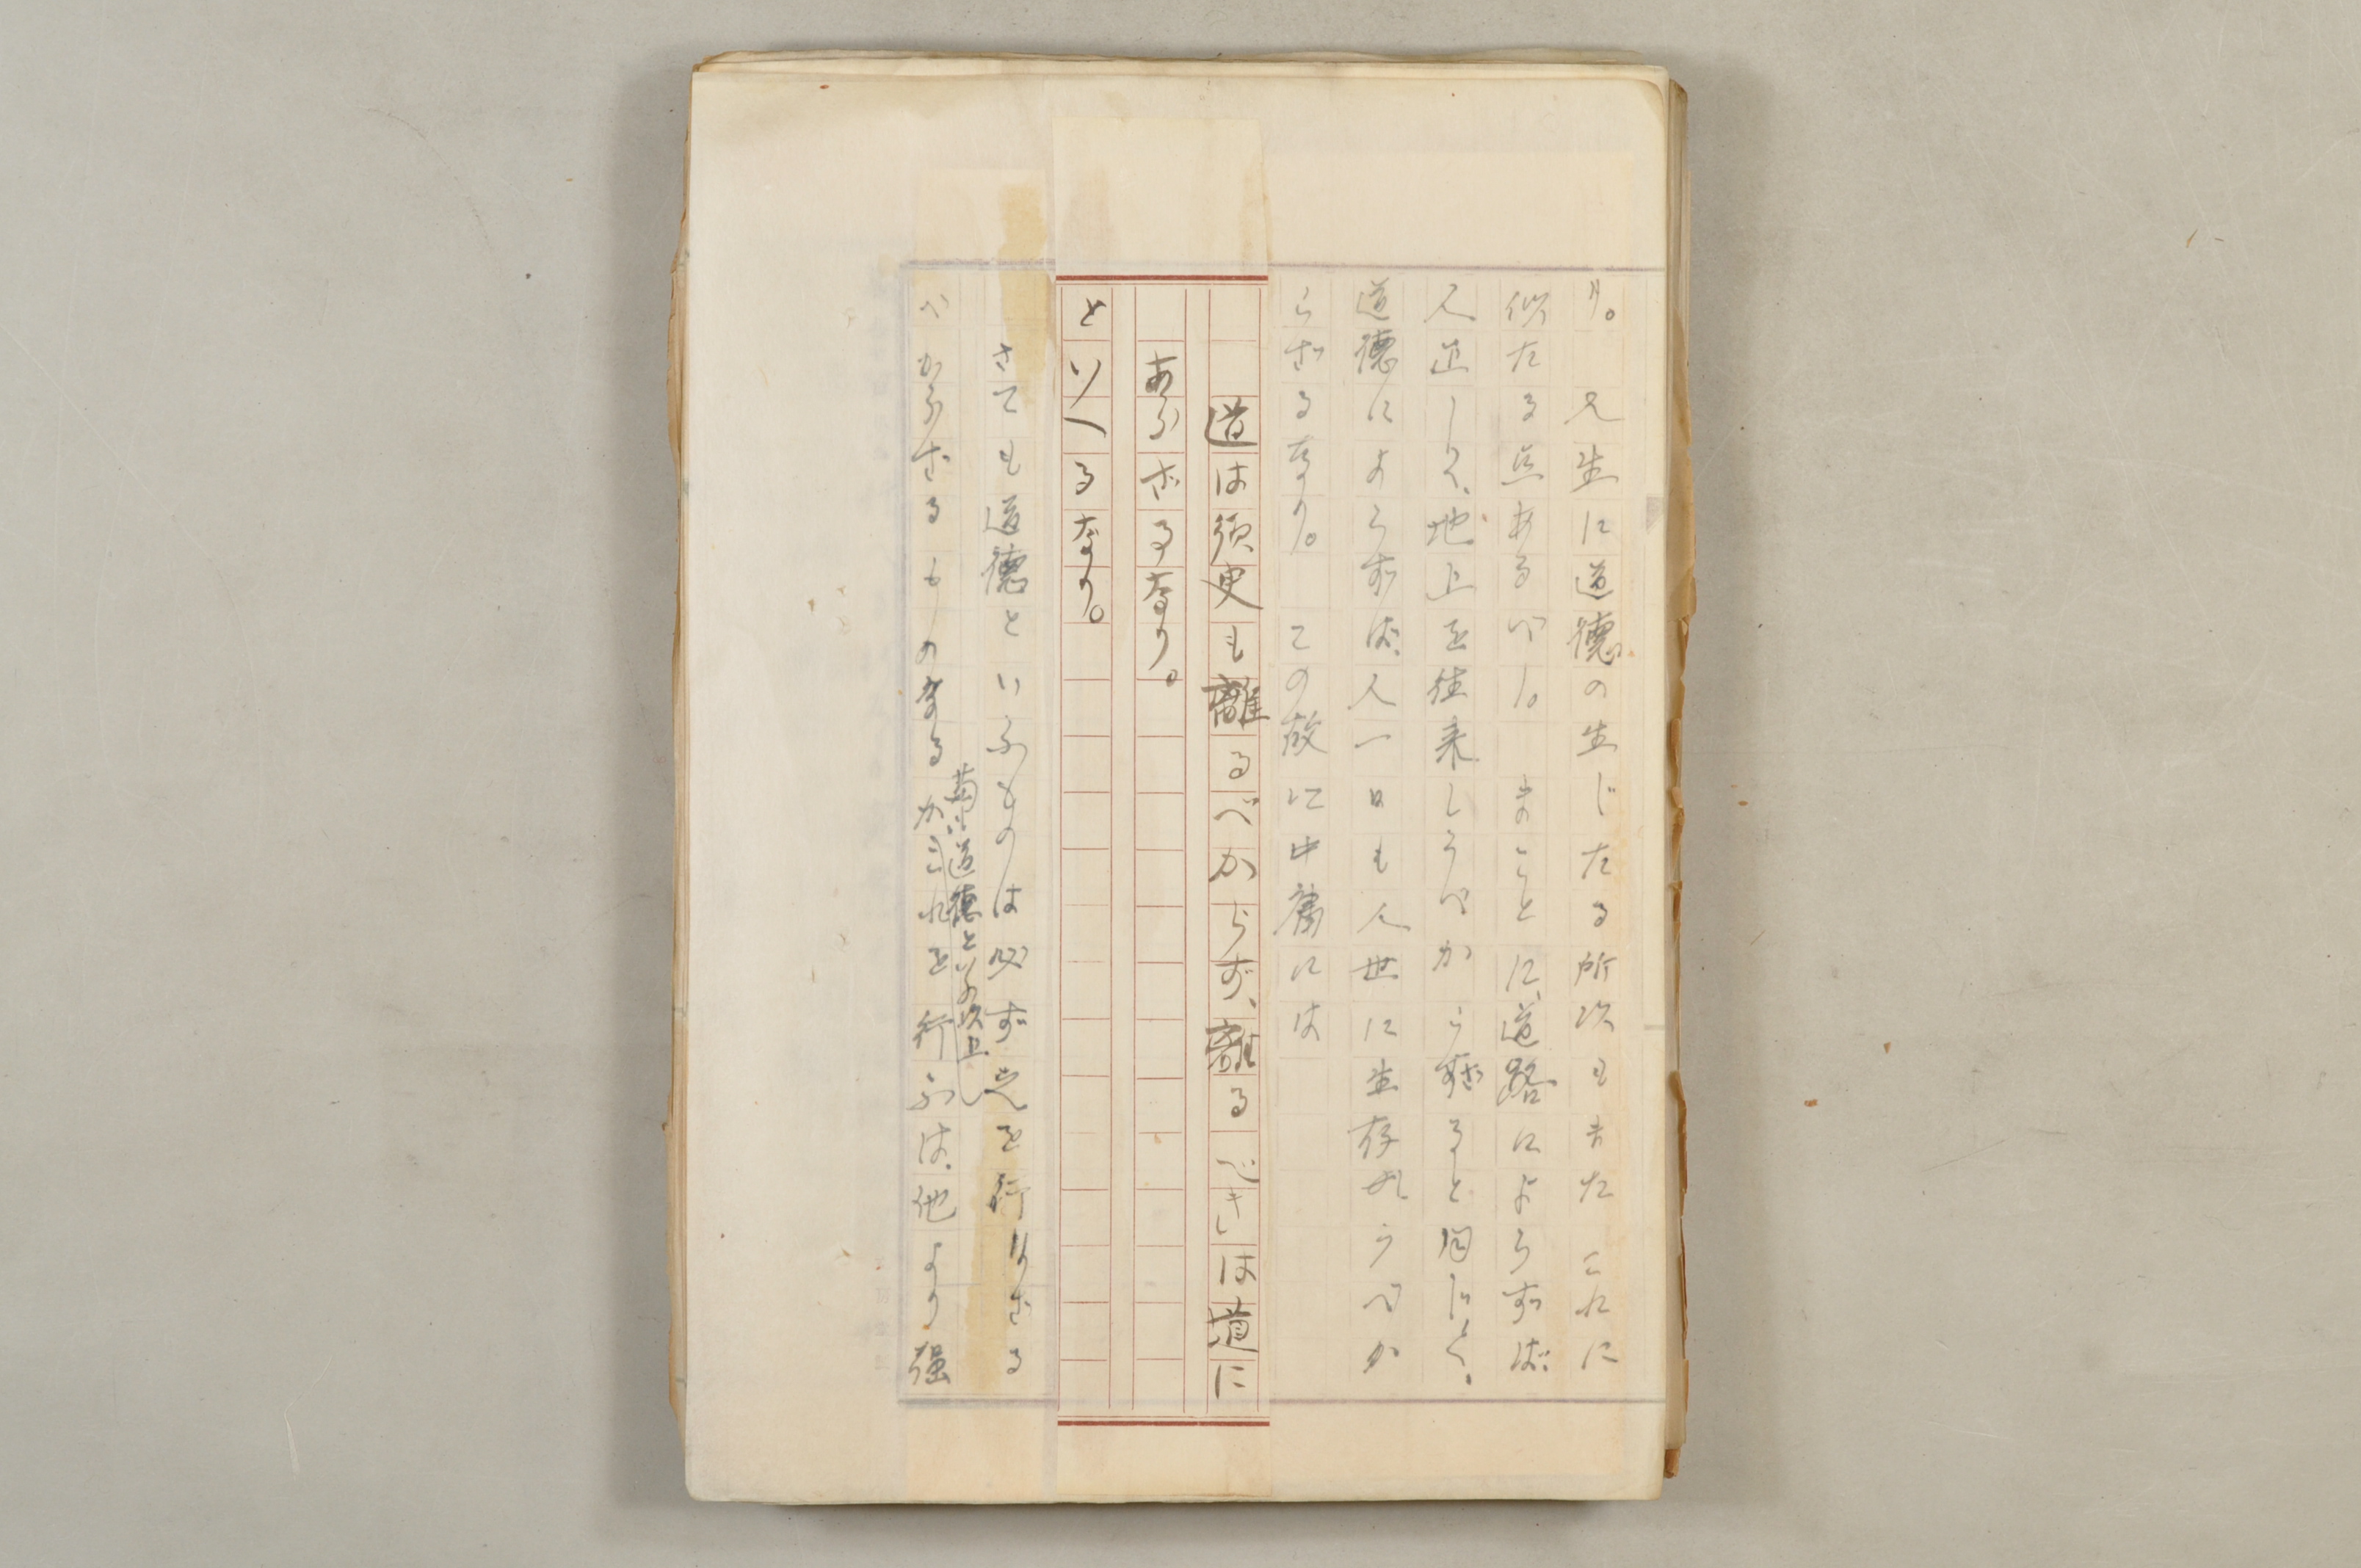 り。 人生に道德の生じたる所次もまたこれに
似たる点あるべし。 まことに、道路によらずば
人迚しく、地上を往来しうべからざると同じく、
道德によらずば、人一日も人世に生存しうべか
らざるなり。 この故に中庸には
道は須臾も離るべからず、離るべきは道に
あらざるなり。
といへるなり。
さても道德といふものは必ず之を行はざる
べからざるものなるがこれを行ふは、他より强
道德といふ以上